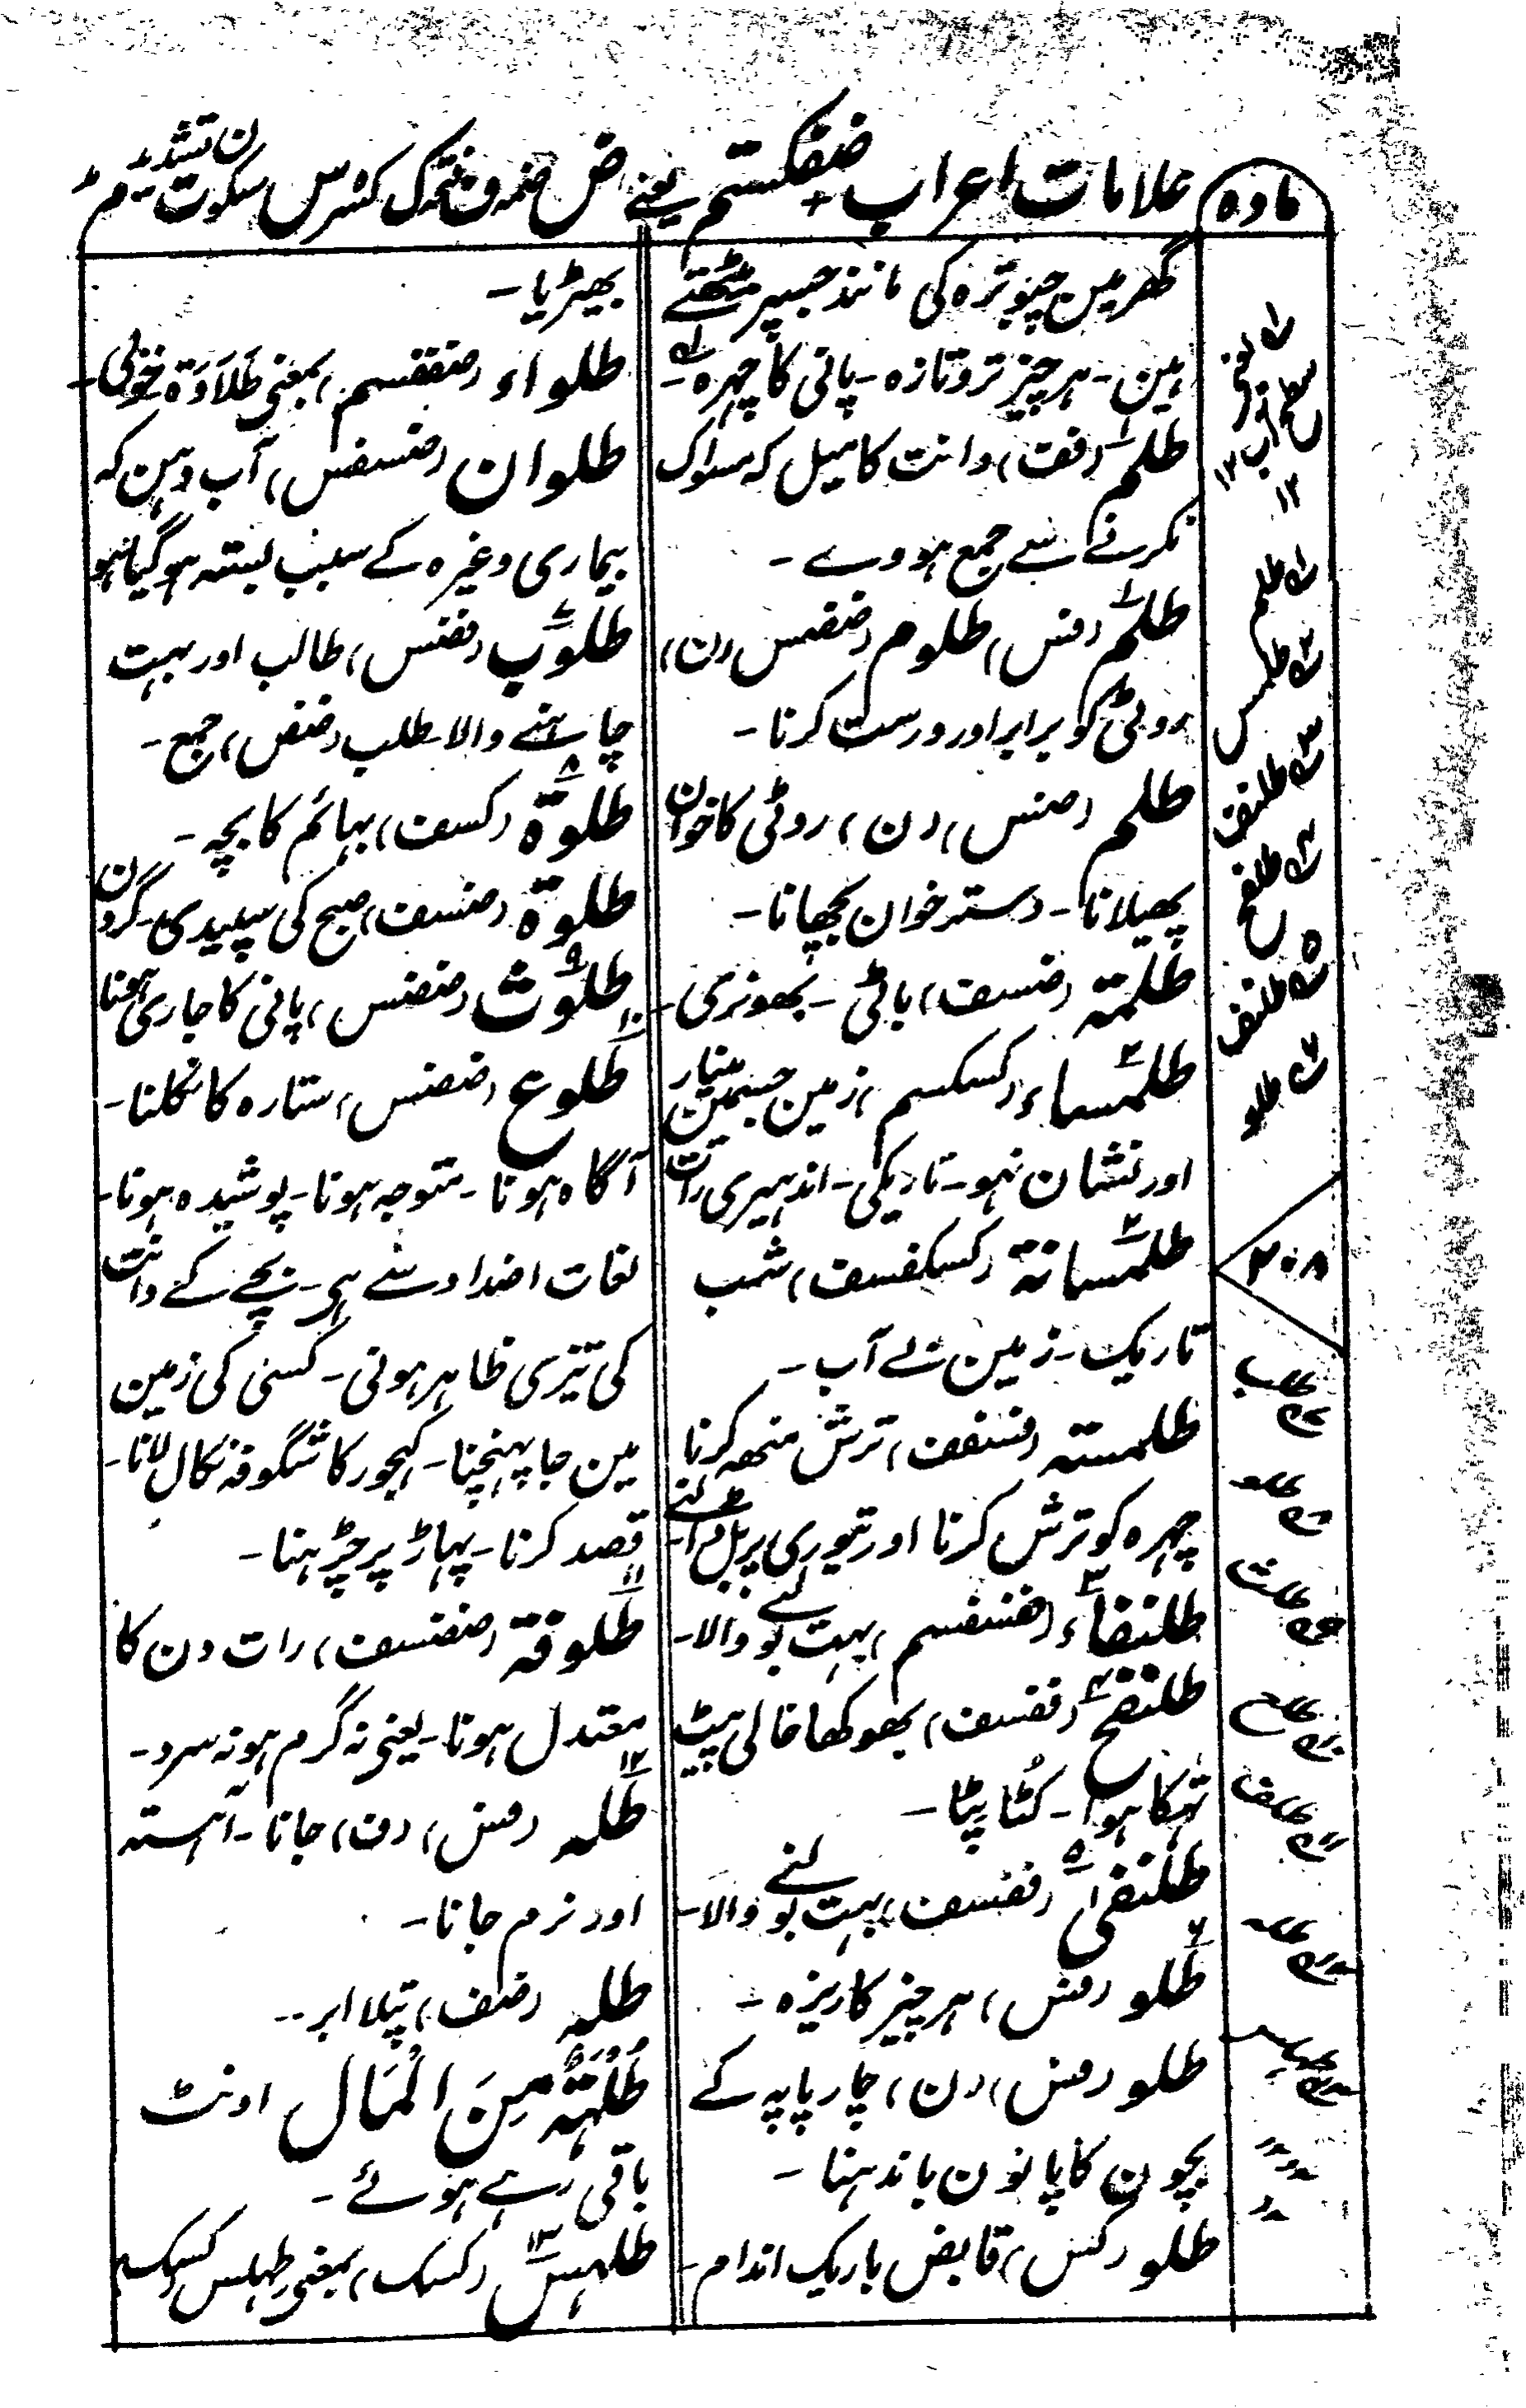 مادہ
علامات اعراب ضفکستم یعنے ض ضمہ ف فتحہ ک کسرہ س سکون ت تشدید م مد
گھر مین چبوترہ کی مانند جسپر بیٹھتے
ہین۔ ہر چیز تر و تازہ۔ پانی کا چہرہ۔
طلم (فت) دانت کا میل کہ مسواک
نکرنے سے جمع ہووے۔
طلم (فس) طلوم (ضفس) (ن)
روٹی کو برابر اور درست کرنا۔
طلم (ضس) (ن) روٹی کا خوان
پھیلانا۔ دستر خوان بچھانا۔
طلمتہ (ضسف) باٹی۔ بھونری۔
طلمساء (کسکسم) زمین جسمین مینار
اور نشان نہو۔ تاریکی۔ اندہیری رات
طلمسانة (کسکفسف) شب
تاریک۔ زمین بے آب۔
طلمستہ (فسففف) ترش منھہ کرنا
چہرہ کو ترش کرنا اور تیوری پر بل ڈالنے
طلنفاء (ففسفسم) بہت بولنے والا۔
طلنفح (ففسف) بھوکھا خالی پیٹ
تھکا ہوا۔ کُٹا پٹا۔
طلنفی (ففسف) بہت بولنے والا۔
طلو (فس) ہر چیز کا ریزہ۔
طلو (فس) (ن) چارپایہ کے
بچون کا پانون باندہنا۔
طلو (کس) قابض باریک اندام۔
بھیڑیا۔
طلواء (ضففسم) بمعنی طَلَاوَة خوبی۔
طلوان (ضسفس) آب دہن کہ
بیماری وغیرہ کے سبب بستہ ہوگیا ہو
طلوب (فضس) طالب اور بہت
چاہنے والا۔ طلب (ضض) جمع۔
طلوة (کسف) بہائم کا بچہ۔
طلوة (ضسف) صبح کی سپیدی۔ گردن
طلوث (ضضس) پانی کا جاری ہونا
طلوع (ضضس) ستارہ کا نکلنا۔
آگاہ ہونا۔ متوجہ ہونا۔ پوشیدہ ہونا۔
لغات اضداد سے ہی۔ بچے کے دانت
کی تیزی ظاہر ہونی۔ کسی کی زمین
مین جا پہنچنا۔ کہجور کا شگوفہ نکال لانا۔
قصد کرنا۔ پہاڑ پر چڑہنا۔
طلوقة (ضضسف) رات دن کا
معتدل ہونا۔ یعنی نہ گرم ہو نہ سرد۔
طلہ (فس) (ف) جانا۔ آہستہ
اور نرم جانا۔
طلہ (ضف) پتلا ابر۔
طُلْهَةٌ مِنَ الْمَال اونٹ
باقی رہے ہوئے۔
طلہس (کسک) بمعنی طہلس (کسک)
طلم
طلمس
طلنف
طلفح
طلنف
طلو
۲۰۸
طلب
طلو
طلث
طلع
طلق
طلہ
طلہس